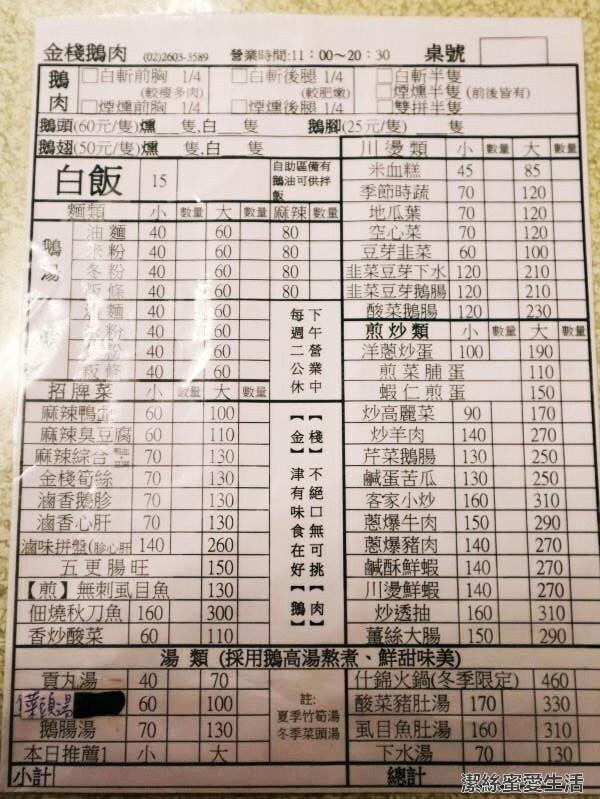 金棧鵝肉 (02)2603-3589 營業時間:11:00～20:30 桌號
鵝肉
白斬前胸 1/4 (較瘦多肉)
煙燻前胸 1/4
白斬後腿 1/4 (較肥嫩)
煙燻後腿 1/4
白斬半隻
煙燻半隻 (前後皆有)
雙拼半隻
鵝頭(60元/隻)燻 隻,白 隻 鵝腳(25元/隻) 隻
鵝翅(50元/隻)燻 隻,白 隻
白飯 15 自助區備有鵝油可供拌飯
麵類 小 數量 大 數量 麻辣 數量
鵝湯
油麵 40 60 80
米粉 40 60 80
冬粉 40 60 80
粄條 40 60 80
油麵 40 60
粉 40 60
粉 40 60
粄條 40 60
下午營業中
每週二公休
招牌菜 小 數量 大 數量
麻辣鴨血 60 100
麻辣臭豆腐 60 110
麻辣綜合 70 130
金棧筍絲 70 130
滷香鵝胗 70 130
滷香心肝 70 130
滷味拼盤(胗心肝 140 260
五更腸旺 150
【煎】無刺虱目魚 130
佃燒秋刀魚 160 300
香炒酸菜 60 110
【棧】不絕口無可挑【肉】
【金】津有味食在好【鵝】
川燙類 小 數量 大 數量
米血糕 45 85
季節時蔬 70 120
地瓜葉 70 120
空心菜 70 120
豆芽韭菜 60 100
韭菜豆芽下水 120 210
韭菜豆芽鵝腸 120 210
酸菜鵝腸 120 230
煎炒類 小 數量 大 數量
洋蔥炒蛋 100 190
煎菜脯蛋 110
蝦仁煎蛋 150
炒高麗菜 90 170
炒羊肉 140 270
芹菜鵝腸 130 250
鹹蛋苦瓜 130 250
客家小炒 160 310
蔥爆牛肉 150 290
蔥爆豬肉 140 270
鹹酥鮮蝦 140 270
川燙鮮蝦 140 270
炒透抽 160 310
薑絲大腸 150 290
湯 類 (採用鵝高湯熬煮、鮮甜味美)
貢丸湯 40 70
菜頭湯 60 100
鵝腸湯 70 130
本日推薦1 小 大
註:
夏季竹筍湯
冬季菜頭湯
什錦火鍋(冬季限定) 460
酸菜豬肚湯 170 330
虱目魚肚湯 160 310
下水湯 70 130
小計 總計
潔絲蜜愛生活